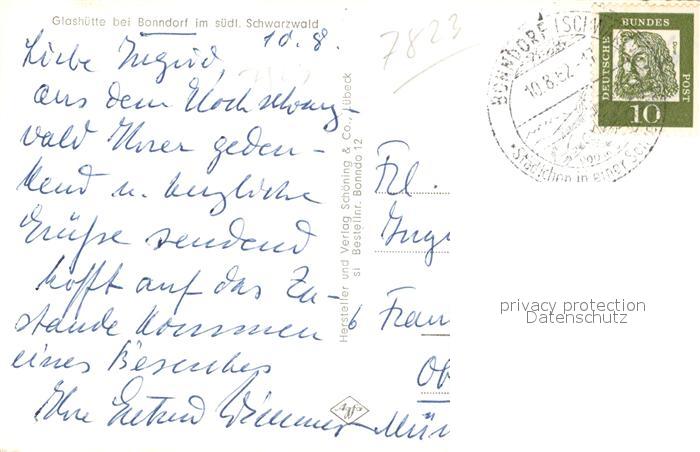 Glashütte bei Bonndorf im südl. Schwarzwald
10. 8.
7823
Liebe Ingrid,
aus dem Hochschwarz-
wald Ihrer geden-
kend u. herzliche
Grüße sendend
hofft auf das Zu-
stande kommen
eines Besuches
Ihre
Hersteller und Verlag Schöning & Co., Lübeck
si Bestellnr. Bonndo 12
Frl.
Ingr
6 Fran
Ob
Mün
BONNDORF (SCHW
10.8.62.-17
Städtchen in einer
DEUTSCHE BUNDES POST
10
privacy protection
Datenschutz